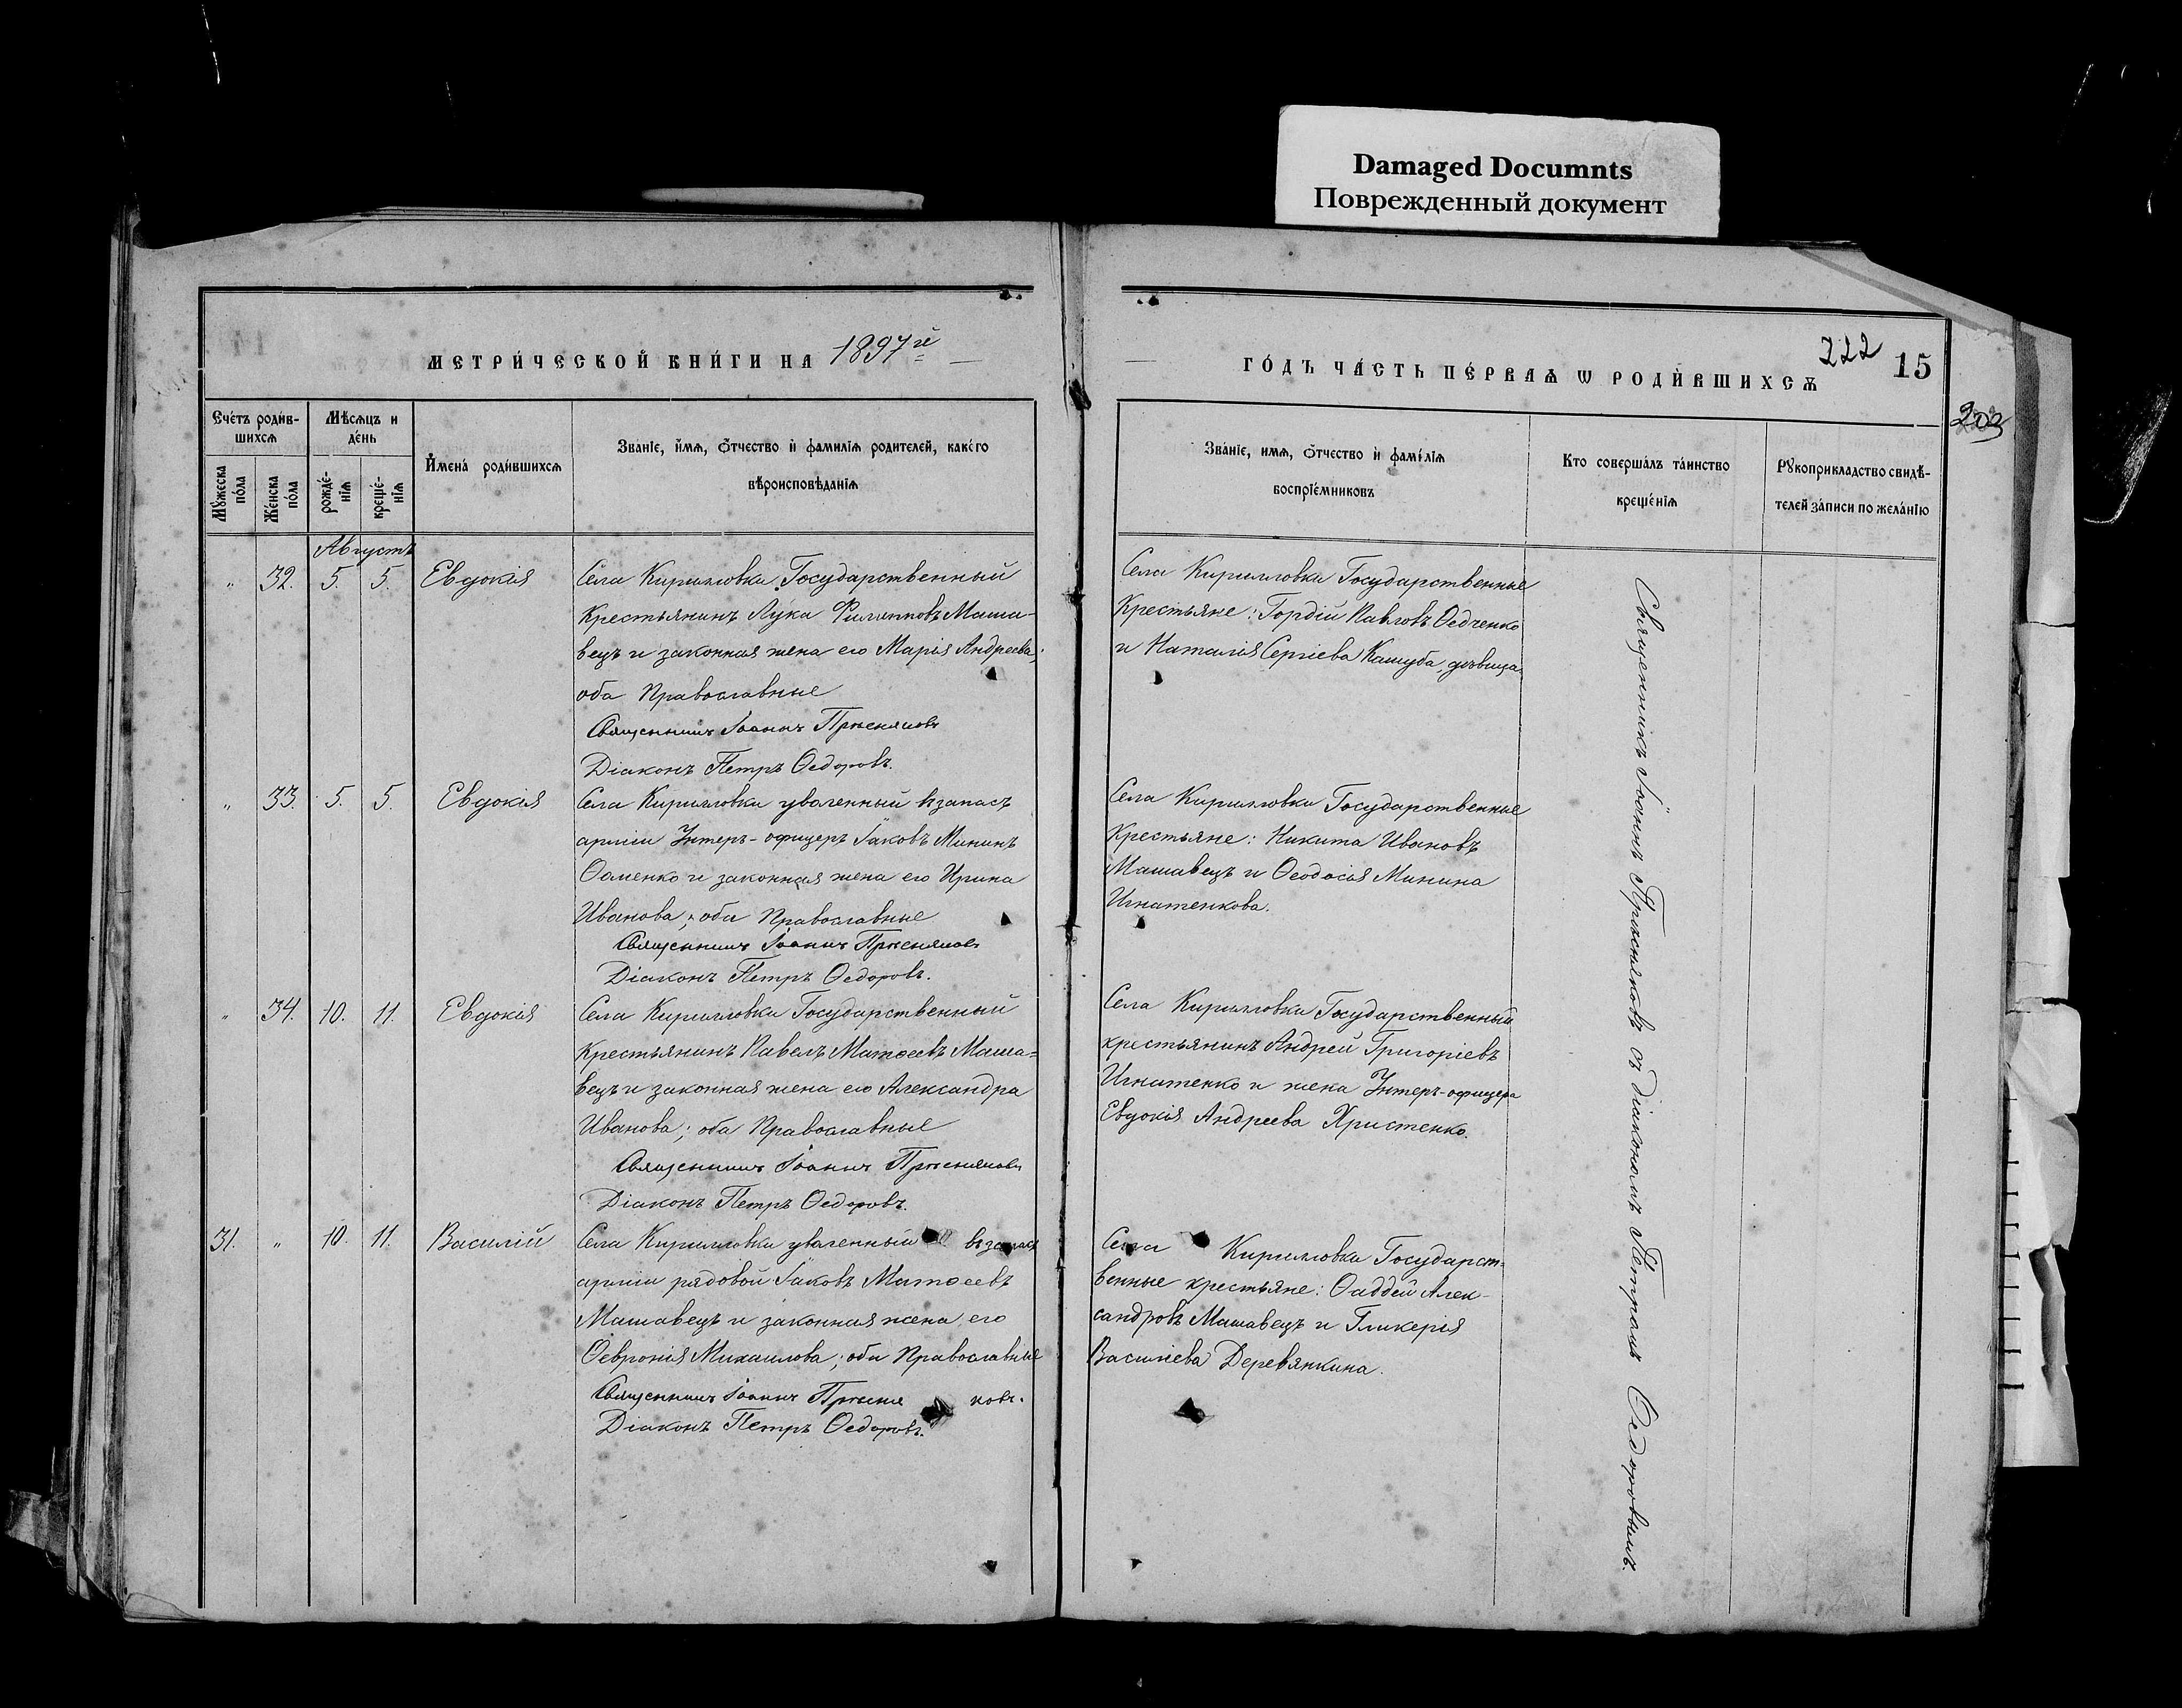 Damaged Documnts
Поврежденный документ
МЕТРИ́ЧЕСКОЙ КНИ́ГИ НА 1897й
ГО́ДЪ ЧА́СТЬ ПЕ́РВАѦ Ѡ РОДИ́ВШИХСѦ
222
15
Сче́тъ роди́в-
шихсѧ
Мѣсѧцъ и
де́нь
Мꙋжеска
по́ла
Же́нска
по́ла
рожде́-
нїѧ
креще́-
нїѧ
И҆мена̀ роди́вшихсѧ
Зва́нїе, и҆́мѧ, ѻ҆́тчество и҆ фами́лїѧ роди́телей, како́го
вѣроисповѣ́данїѧ
Зва́нїе, имѧ, ѻ҆́тчество и҆ фамі́лїѧ
воспрїе́мниковъ
Кто соверша́лъ та́инство
креще́нїѧ
Рꙋкоприкладство свидѣ́-
телей за́писи по жела́нїю
Августъ
„ 32. 5. 5. Евдокія
Села Кирилловки Государственный
Крестьянинъ Лука Филипповъ Маша-
вецъ и законная жена его Марія Андреева;
оба Православные
Священникъ Іоаннъ Присняковъ
Діаконъ Петръ Ѳедоровъ.
Села Кирилловки Государственные
Крестьяне: Гордій Павловъ Ѳедченко
и Наталія Сергіева Кашуба, дѣвица.
„ 33. 5. 5. Евдокія
Села Кирилловки уволенный въ запасъ
арміи Унтеръ-офицеръ Іаковъ Мининъ
Ѳоменко и законная жена его Ирина
Иванова; оба Православные
Священникъ Іоаннъ Присняковъ
Діаконъ Петръ Ѳедоровъ.
Села Кирилловки Государственные
Крестьяне: Никита Ивановъ
Машавецъ и Ѳеодосія Минина
Игнатенкова.
„ 34. 10. 11. Евдокія
Села Кирилловки Государственный
Крестьянинъ Павелъ Матѳеевъ Маша=
вецъ и законная жена его Александра
Иванова; оба Православные
Священникъ Іоаннъ Присняковъ
Діаконъ Петръ Ѳедоровъ.
Села Кирилловки Государственный
крестьянинъ Андрей Григоріевъ
Игнатенко и жена Унтеръ-офицера
Евдокія Андреева Христенко.
31. „ 10. 11. Василій
Села Кирилловки уволенный въ запасъ
арміи рядовой Іаковъ Матѳеевъ
Машавецъ и законная жена его
Ѳевронія Михаилова; оба Православные
Священникъ Іоаннъ Присня ковъ.
Діаконъ Петръ Ѳедоровъ.
Села Кирилловки Государст=
венные крестьяне: Ѳаддей Алек-
сандровъ Машавецъ и Гликерія
Василіева Деревянкина.
Священникъ Іоаннъ Присняковъ съ діакономъ Петромъ Ѳедоровымъ.